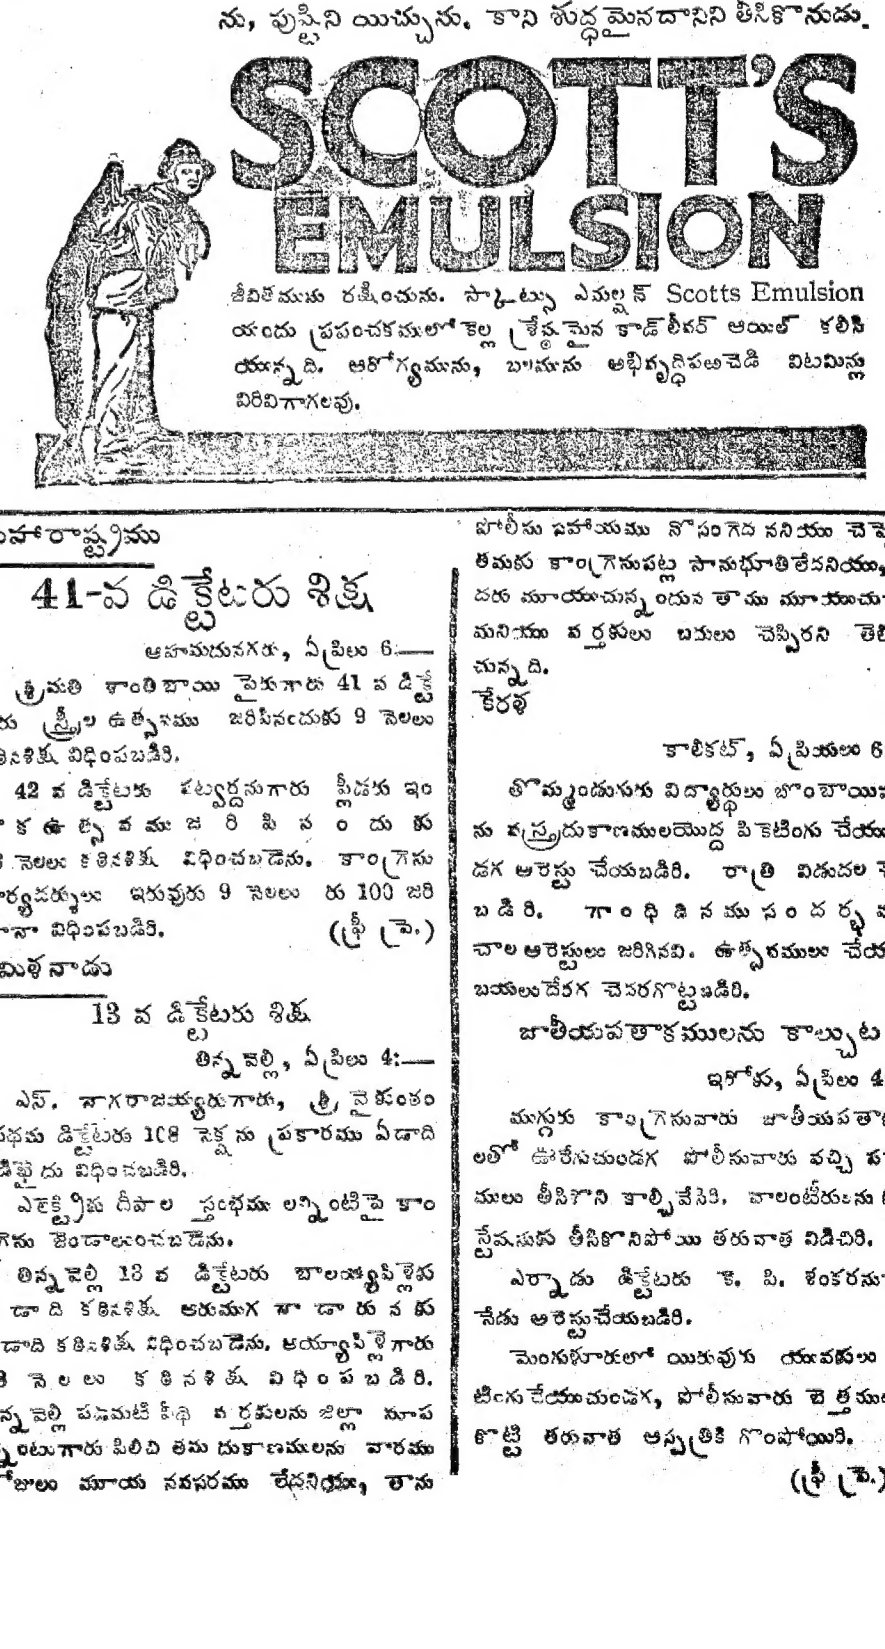 ను, పుష్టిని యిచ్చును. కాని శుద్ధమైనదానిని తీసికొనుడు.
SCOTT'S
EMULSION
జీవితమును రక్షించును. స్కాట్సు ఎమల్షన్ Scotts Emulsion
యందు ప్రపంచకములో కెల్ల శ్రేష్ఠమైన కాడ్‌లీవర్ ఆయిల్ కలిసి
యున్నది. ఆరోగ్యమును, బలమును అభివృద్ధిపఱచెడి విటమిన్లు
విరివిగాగలవు.
హారాష్ట్రము
41-వ డిక్టేటరు శిక్ష
ఆహమదునగరు, ఏప్రిలు 6:—
శ్రీమతి శాంతిబాయి పైకుగారు 41 వ డిక్టే
రు స్త్రీల ఉత్సవము జరిపినందుకు 9 నెలలు
కఠినశిక్ష విధింపబడిరి.
42 వ డిక్టేటరు పట్వర్ధనుగారు ప్లీడరు ఇం
క ఉత్సవము జరిపినందుకు
నెలలు కఠినశిక్ష విధించబడెను. కాంగ్రెసు
ర్యదర్శులు ఇరువురు 9 నెలలు రు 100 జరి
నా విధింపబడిరి. (ఫ్రీ ప్రె.)
మిళనాడు
13 వ డిక్టేటరు శిక్ష
తిన్నవెల్లి, ఏప్రిలు 4:—
ఎస్. నాగరాజయ్యరుగారు, శ్రీ వైకుంఠం
థమ డిక్టేటరు 108 సెక్షను ప్రకారము ఏడాది
ఖైదు విధించబడిరి.
ఎలెక్ట్రికు దీపాల స్తంభము లన్నింటిపై కాం
గెసు జెండాలుంచబడెను.
తిన్నవెల్లి 13 వ డిక్టేటరు బాలయ్యాపిళ్లెకు
డాది కఠినశిక్ష ఆరుముగ నాడారునకు
డాది కఠినశిక్ష విధించబడెను. అయ్యాపిళ్లెగారు
నెలలు కఠినశిక్ష విధింపబడిరి.
న్నవెల్లి పడమటి వీధి వర్తకులను జిల్లా సూప
్నంటుగారు పిలిచి తమ దుకాణములను వారము
జులు మూయ నవసరము లేదనియు, తాను
పోలీసు సహాయము నొసంగెద ననియు చెప్పె
తమకు కాంగ్రెసుపట్ల సానుభూతిలేదనియు,
దరు మూయుచున్నందున తాము మూయుచు
మనియు వర్తకులు బదులు చెప్పిరని తెలి
చున్నది.
కేరళ
కాలికట్, ఏప్రియలు 6
తొమ్మండుగురు విద్యార్థులు బొంబాయి
ను వస్త్రదుకాణములయొద్ద పికెటింగు చేయు
డగ అరెస్టు చేయబడిరి. రాత్రి విడుదల
బడిరి. గాంధిదినము సందర్భ
చాల అరెస్టులు జరిగినవి. ఉత్సవములు చేయ
బయలుదేరగ చెదరగొట్టబడిరి.
జాతీయపతాకములను కాల్చుట
ఏప్రిలు 4
ముగ్గురు కాంగ్రెసువారు జాతీయపతా
లతో ఊరేగుచుండగ పోలీసువారు వచ్చి ప
ములు తీసికొని కాల్చివేసిరి. వాలంటీరులను
స్టేషనుకు తీసికొనిపోయి తరువాత విడిచిరి.
ఎర్నాడు డిక్టేటరు కె. పి. శంకరను
నేడు అరెస్టుచేయబడిరి.
మెంగుళూరులో యిరువురు యువకులు
టింగుచేయుచుండగ, పోలీసువారు బెత్తము
కొట్టి తరువాత ఆస్పత్రికి గొంపోయిరి.
(ఫ్రీ ప్రె.)